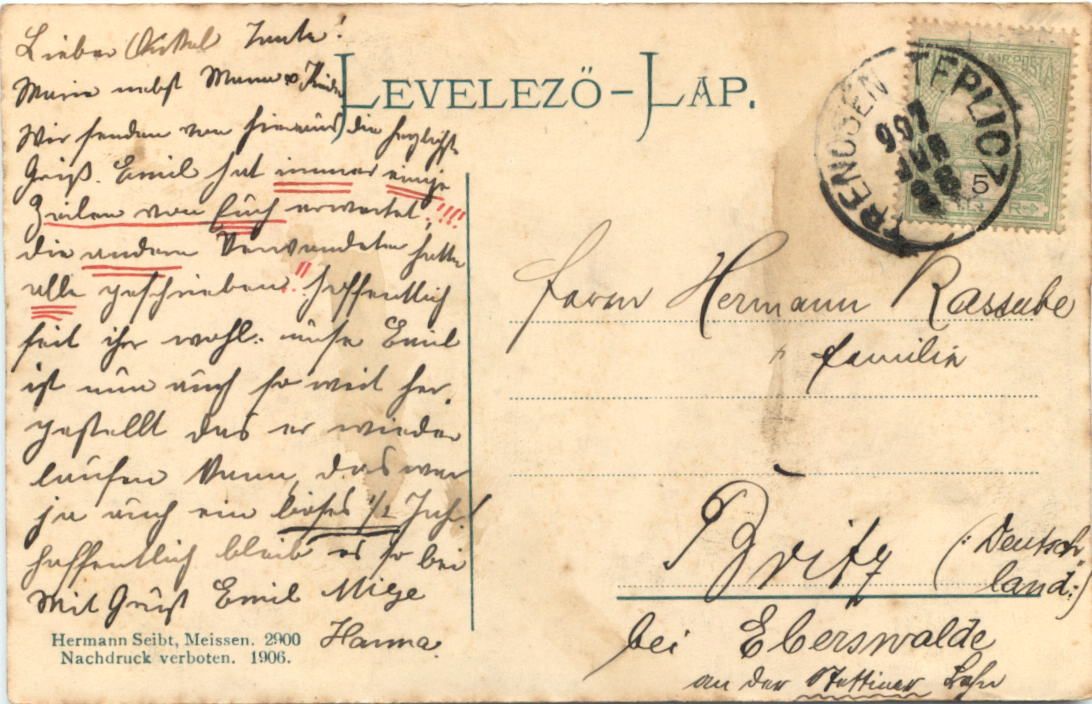 Lieber Onkel Tante!
Marie nebst Mann u. Kinder
Wir senden von hieraus die herzlichst.
Grüß. Emil hat immer einige
Zeilen von Euch erwartet!!!!
die andern Verwandten hatte
alle geschrieben!! hoffentlich
seit ihr wohl. unse Emil
ist nun auch so weit her,
gestellt das er wieder
laufen kann, das war
ja auch ein böses 1/2 Jah!
hoffentlich bleib es so bei
Mit Grüß Emil
Hanna.
Hermann Seibt, Meissen. 2900
Nachdruck verboten. 1906.
LEVELEZŐ-LAP.
TRENCSÉN TEPLICZ
907
5
Herrn Hermann Kassube
Familie
Britz (: Deutsch,
land:)
bei Eberswalde
an der Stettiner Bahn